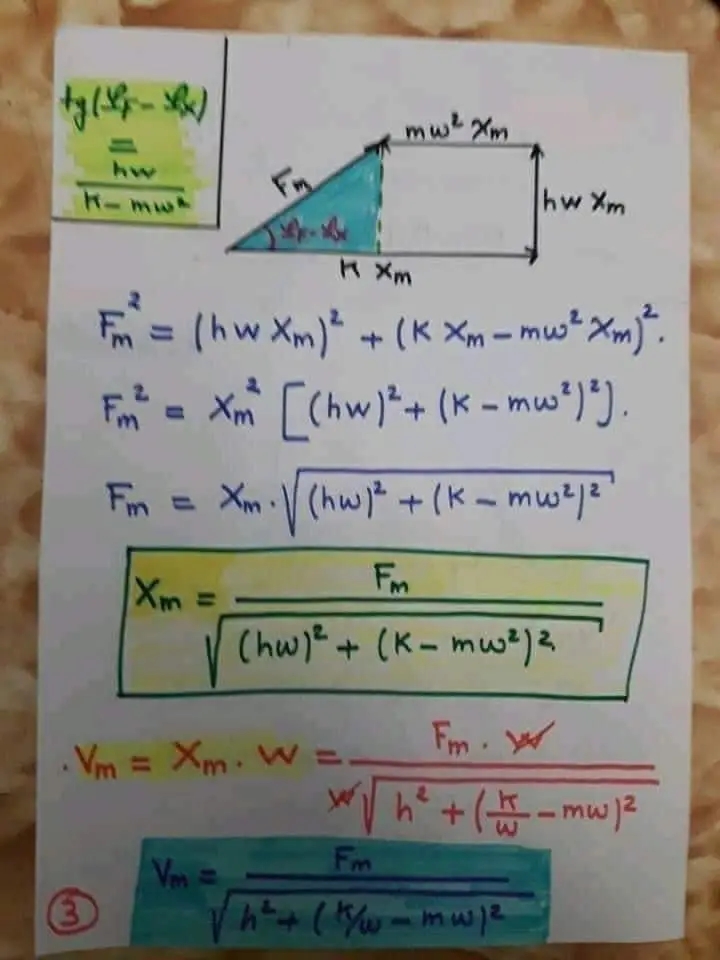 tg(φF - φx)
=
hw
K - mw²
mw² Xm
Fm
hw Xm
φF - φx
K Xm
Fm² = (hw Xm)² + (K Xm - mw² Xm)².
Fm² = Xm² [(hw)² + (K - mw²)²].
Fm = Xm . √(hw)² + (K - mw²)²
Xm = Fm / √(hw)² + (K - mw²)²
. Vm = Xm . w = Fm . w / w√h² + (K/w - mw)²
Vm = Fm / √h² + (K/w - mw)²
3